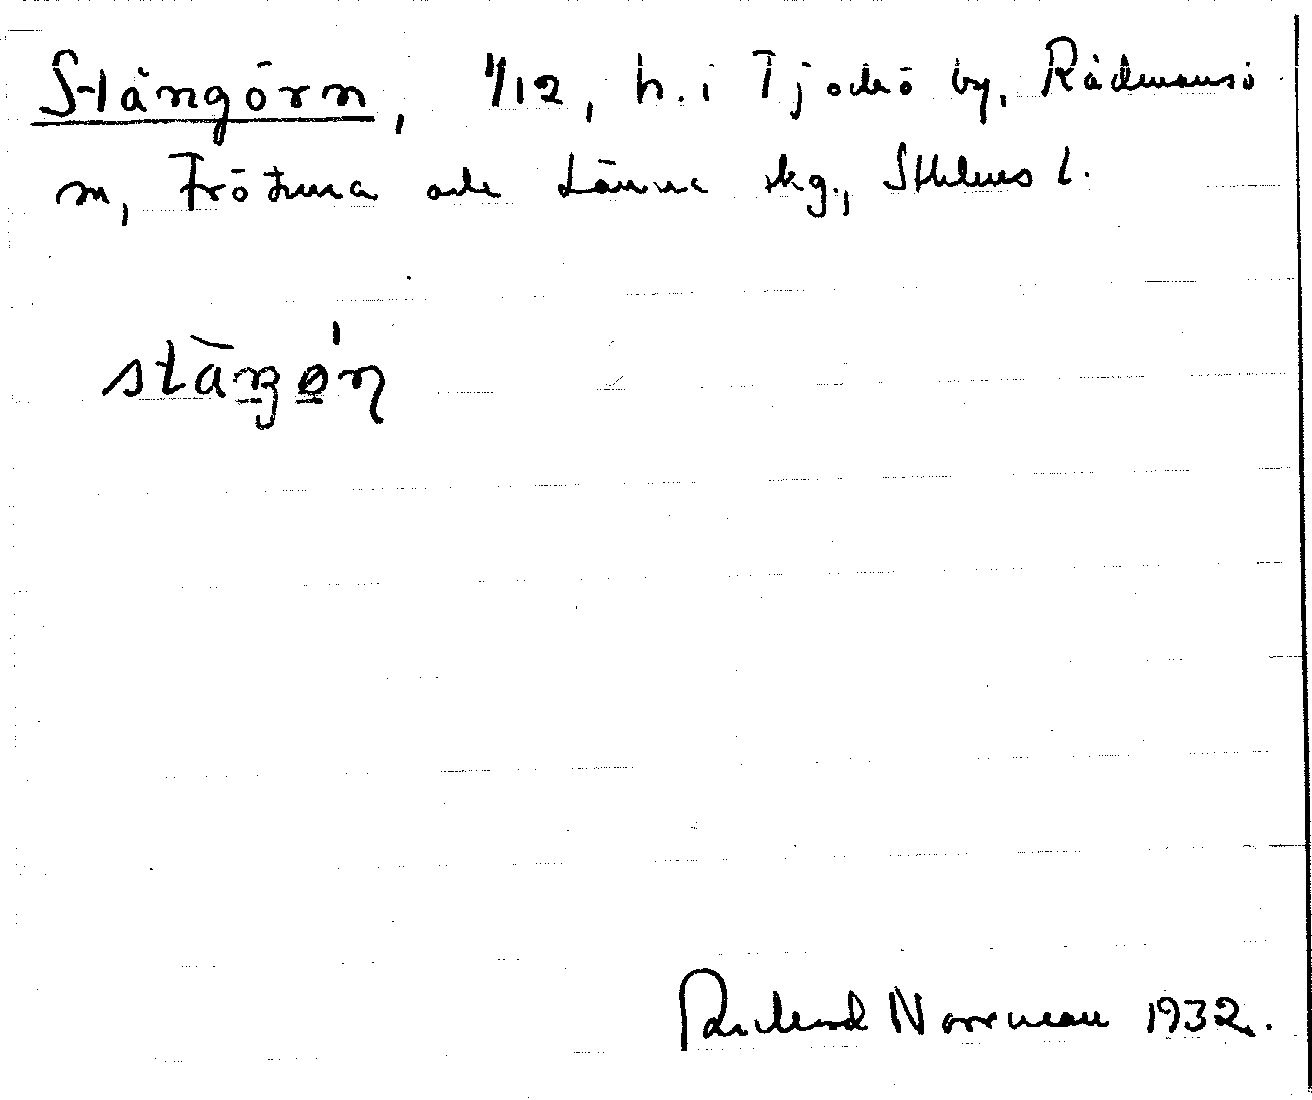 Stångörn, 1/12, h. i Tjockö by, Rådmansö
sn, Frötuna och Länna skg., Sthlms l.
stàŋø'n
Rickard Norrman 1932.